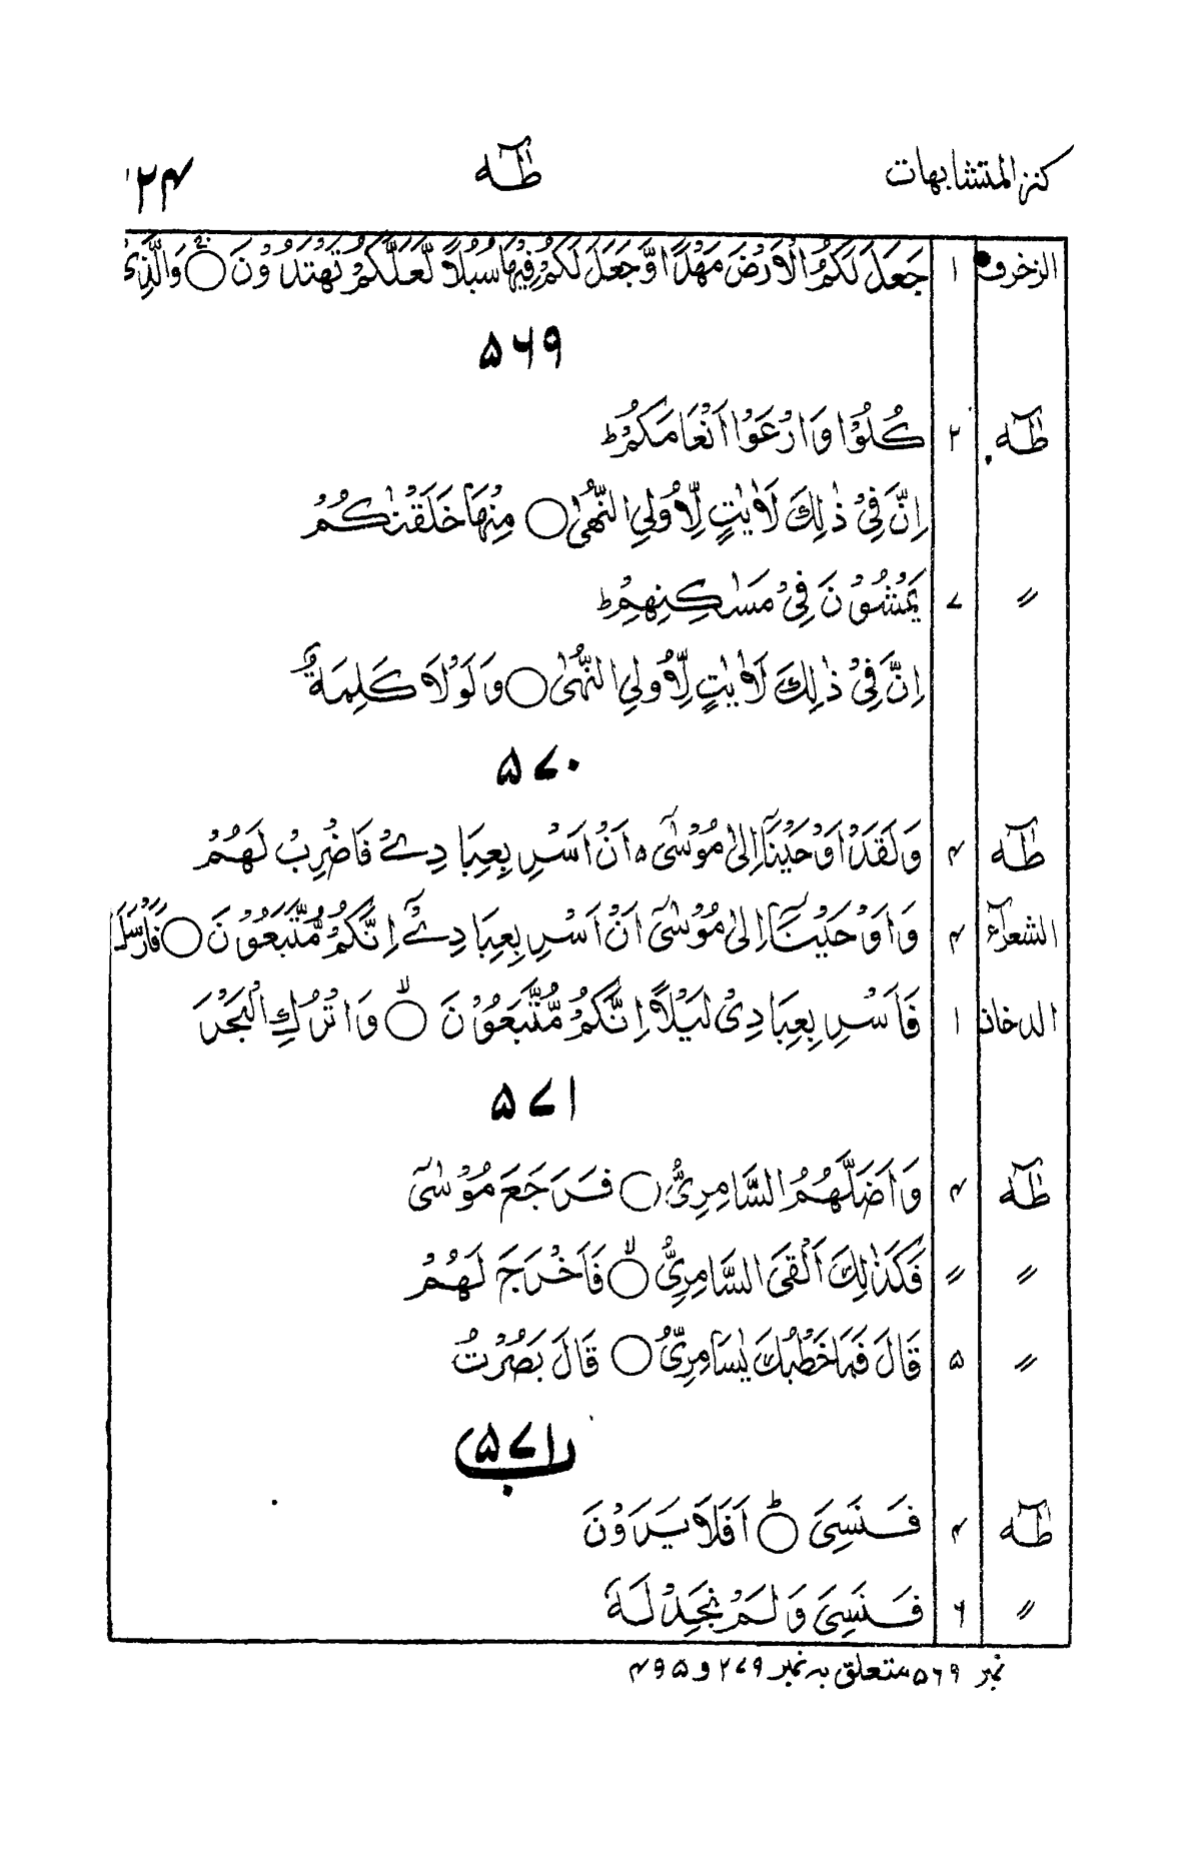 کنز المتشابهات طٰهٰ ۲۴
الزخرف ۱ جَعَلَ لَكُمُ الْاَرْضَ مَهْدًا وَّجَعَلَ لَكُمْ فِيْهَا سُبُلًا لَّعَلَّكُمْ تَهْتَدُوْنَ ○ وَالَّذِىْ
۵۶۹
طٰهٰ ۲ كُلُوْا وَارْعَوْا اَنْعَامَكُمْ ؕ
اِنَّ فِىْ ذٰلِكَ لَاٰيٰتٍ لِّاُولِى النُّهٰى ○ مِنْهَا خَلَقْنٰكُمْ
〃 ۷ يَمْشُوْنَ فِىْ مَسٰكِنِهِمْ ؕ
اِنَّ فِىْ ذٰلِكَ لَاٰيٰتٍ لِّاُولِى النُّهٰى ○ وَلَوْلَا كَلِمَةٌ
۵۷۰
طٰهٰ ۴ وَلَقَدْ اَوْحَيْنَاۤ اِلٰى مُوْسٰۤى ە اَنْ اَسْرِ بِعِبَادِىْ فَاضْرِبْ لَهُمْ
الشعرآء ۴ وَاَوْحَيْنَاۤ اِلٰى مُوْسٰۤى اَنْ اَسْرِ بِعِبَادِىْۤ اِنَّكُمْ مُّتَّبَعُوْنَ ○ فَاَرْسَلَ
الدخان ۱ فَاَسْرِ بِعِبَادِىْ لَيْلًا اِنَّكُمْ مُّتَّبَعُوْنَ ○ وَاتْرُكِ الْبَحْرَ
۵۷۱
طٰهٰ ۴ وَاَضَلَّهُمُ السَّامِرِىُّ ○ فَرَجَعَ مُوْسٰۤى
〃 〃 فَكَذٰلِكَ اَلْقَى السَّامِرِىُّ ○ فَاَخْرَجَ لَهُمْ
〃 ۵ قَالَ فَمَا خَطْبُكَ يٰسَامِرِىُّ ○ قَالَ بَصُرْتُ
۵۷۱ ب
طٰهٰ ۴ فَنَسِىَ ○ اَفَلَا يَرَوْنَ
〃 ۶ فَنَسِىَ وَلَمْ نَجِدْ لَهٗ
نمبر ۵۶۹ متعلق به نمبر ۲۷۹ و ۴۹۵